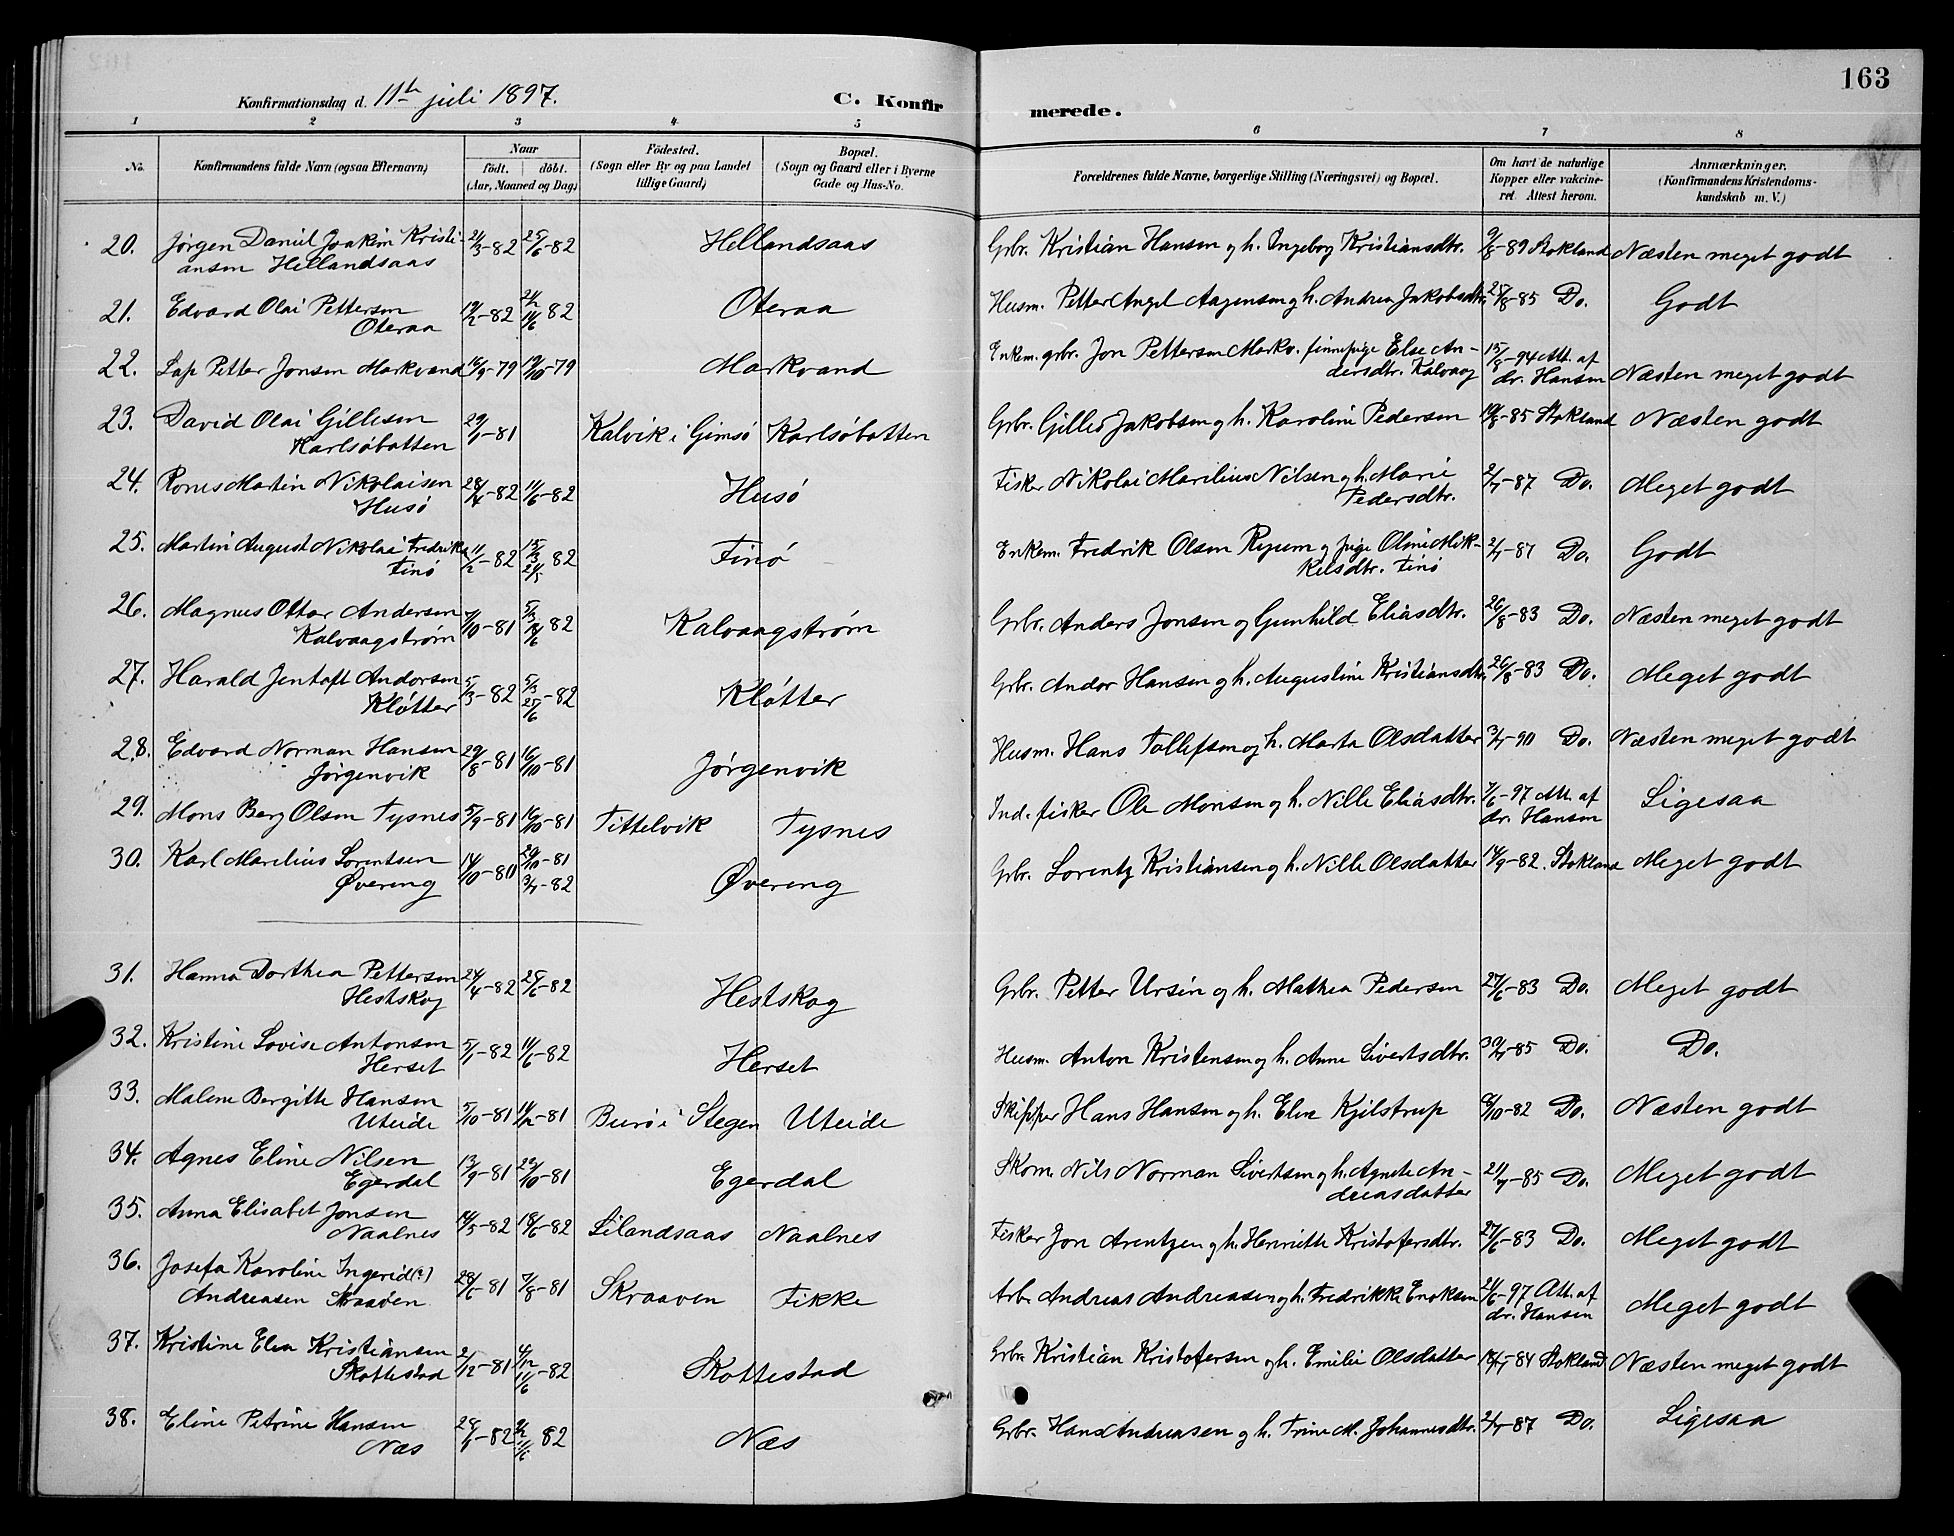 163
Konfirmationsdag d. 11te juli 1897. C. Konfirmerede.
1 2 3 4 5 6 7 8
No. Konfirmandens fulde Navn (ogsaa Efternavn) Naar födt. döbt. (Aar, Maaned og Dag) Födested. (Sogn eller By og paa Landet tillige Gaard) Bopæl. (Sogn og Gaard eller i Byerne Gade og Hus-No. Forældrenes fulde Navne, borgerlige Stilling (Næringsvei) og Bopæl. Om havt de naturlige Kopper eller vakcineret. Attest herom. Anmærkninger. (Konfirmandens Kristendomskundskab m. V.)
20. Jørgen Daniel Joakim Kristiansen Hellandsaas 21/3-82 25/6-82 Hellandsaas Grbr. Kristian Hansen og h. Ingeborg Kristiansdtr. 9/8-89 Stokland Næsten meget godt
21. Edvard Olai Pettersen Oteraa 19/2-82 11/6 82 Oteraa Husm. Petter Angel Aagensen og h. Andrea Jakobsdtr. 28/8-85 Do. Godt
22. Lap Petter Jonsen Markvand 16/9-79 19/10-79 Markvand Enkem. grbr. Jon Pettersen Markv. finnepige Else Andersdtr. Kalvaag 15/8-94 Att. af dr. Hansen Næsten meget godt
23. David Olai Gillesen Karlsøbotten 29/1-81 Kalvik i Gimsø Karlsøbotten Grbr. Gilles Jakobsen og h. Karoline Pedersen 19/8-85 Stokland Næsten godt
24. Rones Martin Nikolaisen Husø 28/4-82 11/6-82 Husø Fisker Nikolai Marilius Nilsen og h. Marie Pedersdtr. 2/7-87 Do. Meget godt
25. Martin August Nikolai Fredriks. Finø 11/2-82 15/3 82 Finø Enkem. Fredrik Olsen Rypem og pige Oline Mikkelsdtr. Finø 2/7-87 Do. Godt
26. Magnus Ottar Andersen Kalvaagstrøm 7/10-81 18/6 82 Kalvaagstrøm Grbr. Anders Jonsen og Gunhild Eliasdtr. 26/8-83 Do. Næsten meget godt
27. Harald Jentoft Andorsen Kløtter 5/3-82 5/3 25/6-82 Kløtter Grbr. Andor Hansen og h. Augustine Kristiansdtr. 26/8-83 Do. Meget godt
28. Edvard Norman Hansen Jørgenvik 29/8-81 16/10-81 Jørgenvik Husm. Hans Tollefsen og h. Marta Olsdatter 3/7-90 Do. Næsten meget godt
29. Mons Berg Olsen Tysnes 5/9-81 16/10-81 Tittelvik Tysnes Ind. fisker Ole Monsen og h. Nille Eliasdtr. 7/6-97 Att. af dr. Hansen Ligesaa
30. Karl Marelius Lorentsen Øvereng 14/10-80 29/10-81 3/7-82 Øvereng Grbr. Lorentz Kristiansen og h. Nille Olsdatter 14/9-82. Stokland Meget godt
31. Hanna Dorthea Pettersen Hestskog 24/4-82 25/6-82 Hestskog Grbr. Petter Ursin og h. Mathea Pedersen 27/6-83 Do. Meget godt
32. Kristine Lovise Antonsen Herset 5/1-82 11/6-82 Herset Husm. Anton Kristensen og h. Anne Sivertsdtr. 30/7-85 Do. Do.
33. Malene Bergitte Hansen Uteide 5/10-81 -81 Burøi Stegen Uteide Skipper Hans Hansen og h. Elen Kjilstrup 6/10-82 Do. Næsten godt
34. Agnes Eline Nilsen Egerdal 13/9-81 23/10-81 Egerdal Skom. Nils Norman Sivertsen og h. Agnete Andreasdatter 21/7-85 Do. Meget godt
35. Anna Elisabet Jonsen Naalnes 14/5-82 18/6-82 Silandsaas Naalnes Fisker Jon Arentzen og h. Henriette Kristofersdtr. 27/6-83 Do. Meget godt
36. Josefa Karoline Ingerid(?) Andreasen Skraaven 28/6-81 7/8-81 Skraaven Fikke Arb. Andreas Andreasen og h. Fredrikke Enoksen 21/6-97 Att. af dr. Hansen Meget godt
37. Kristine Elen Kristiansen Skottestad 2/12-81 4/12 11/6-82 Skottestad Grbr. Kristian Kristofersen og h. Emilie Olsdatter -84 Stokland Næsten meget godt
38. Eline Petrine Hansen Næs 28/1-82 11/6 82 Næs Grbr. Hans Andreasen og h. Trine M. Johannesdtr. 2/7-87 Do. Ligesaa